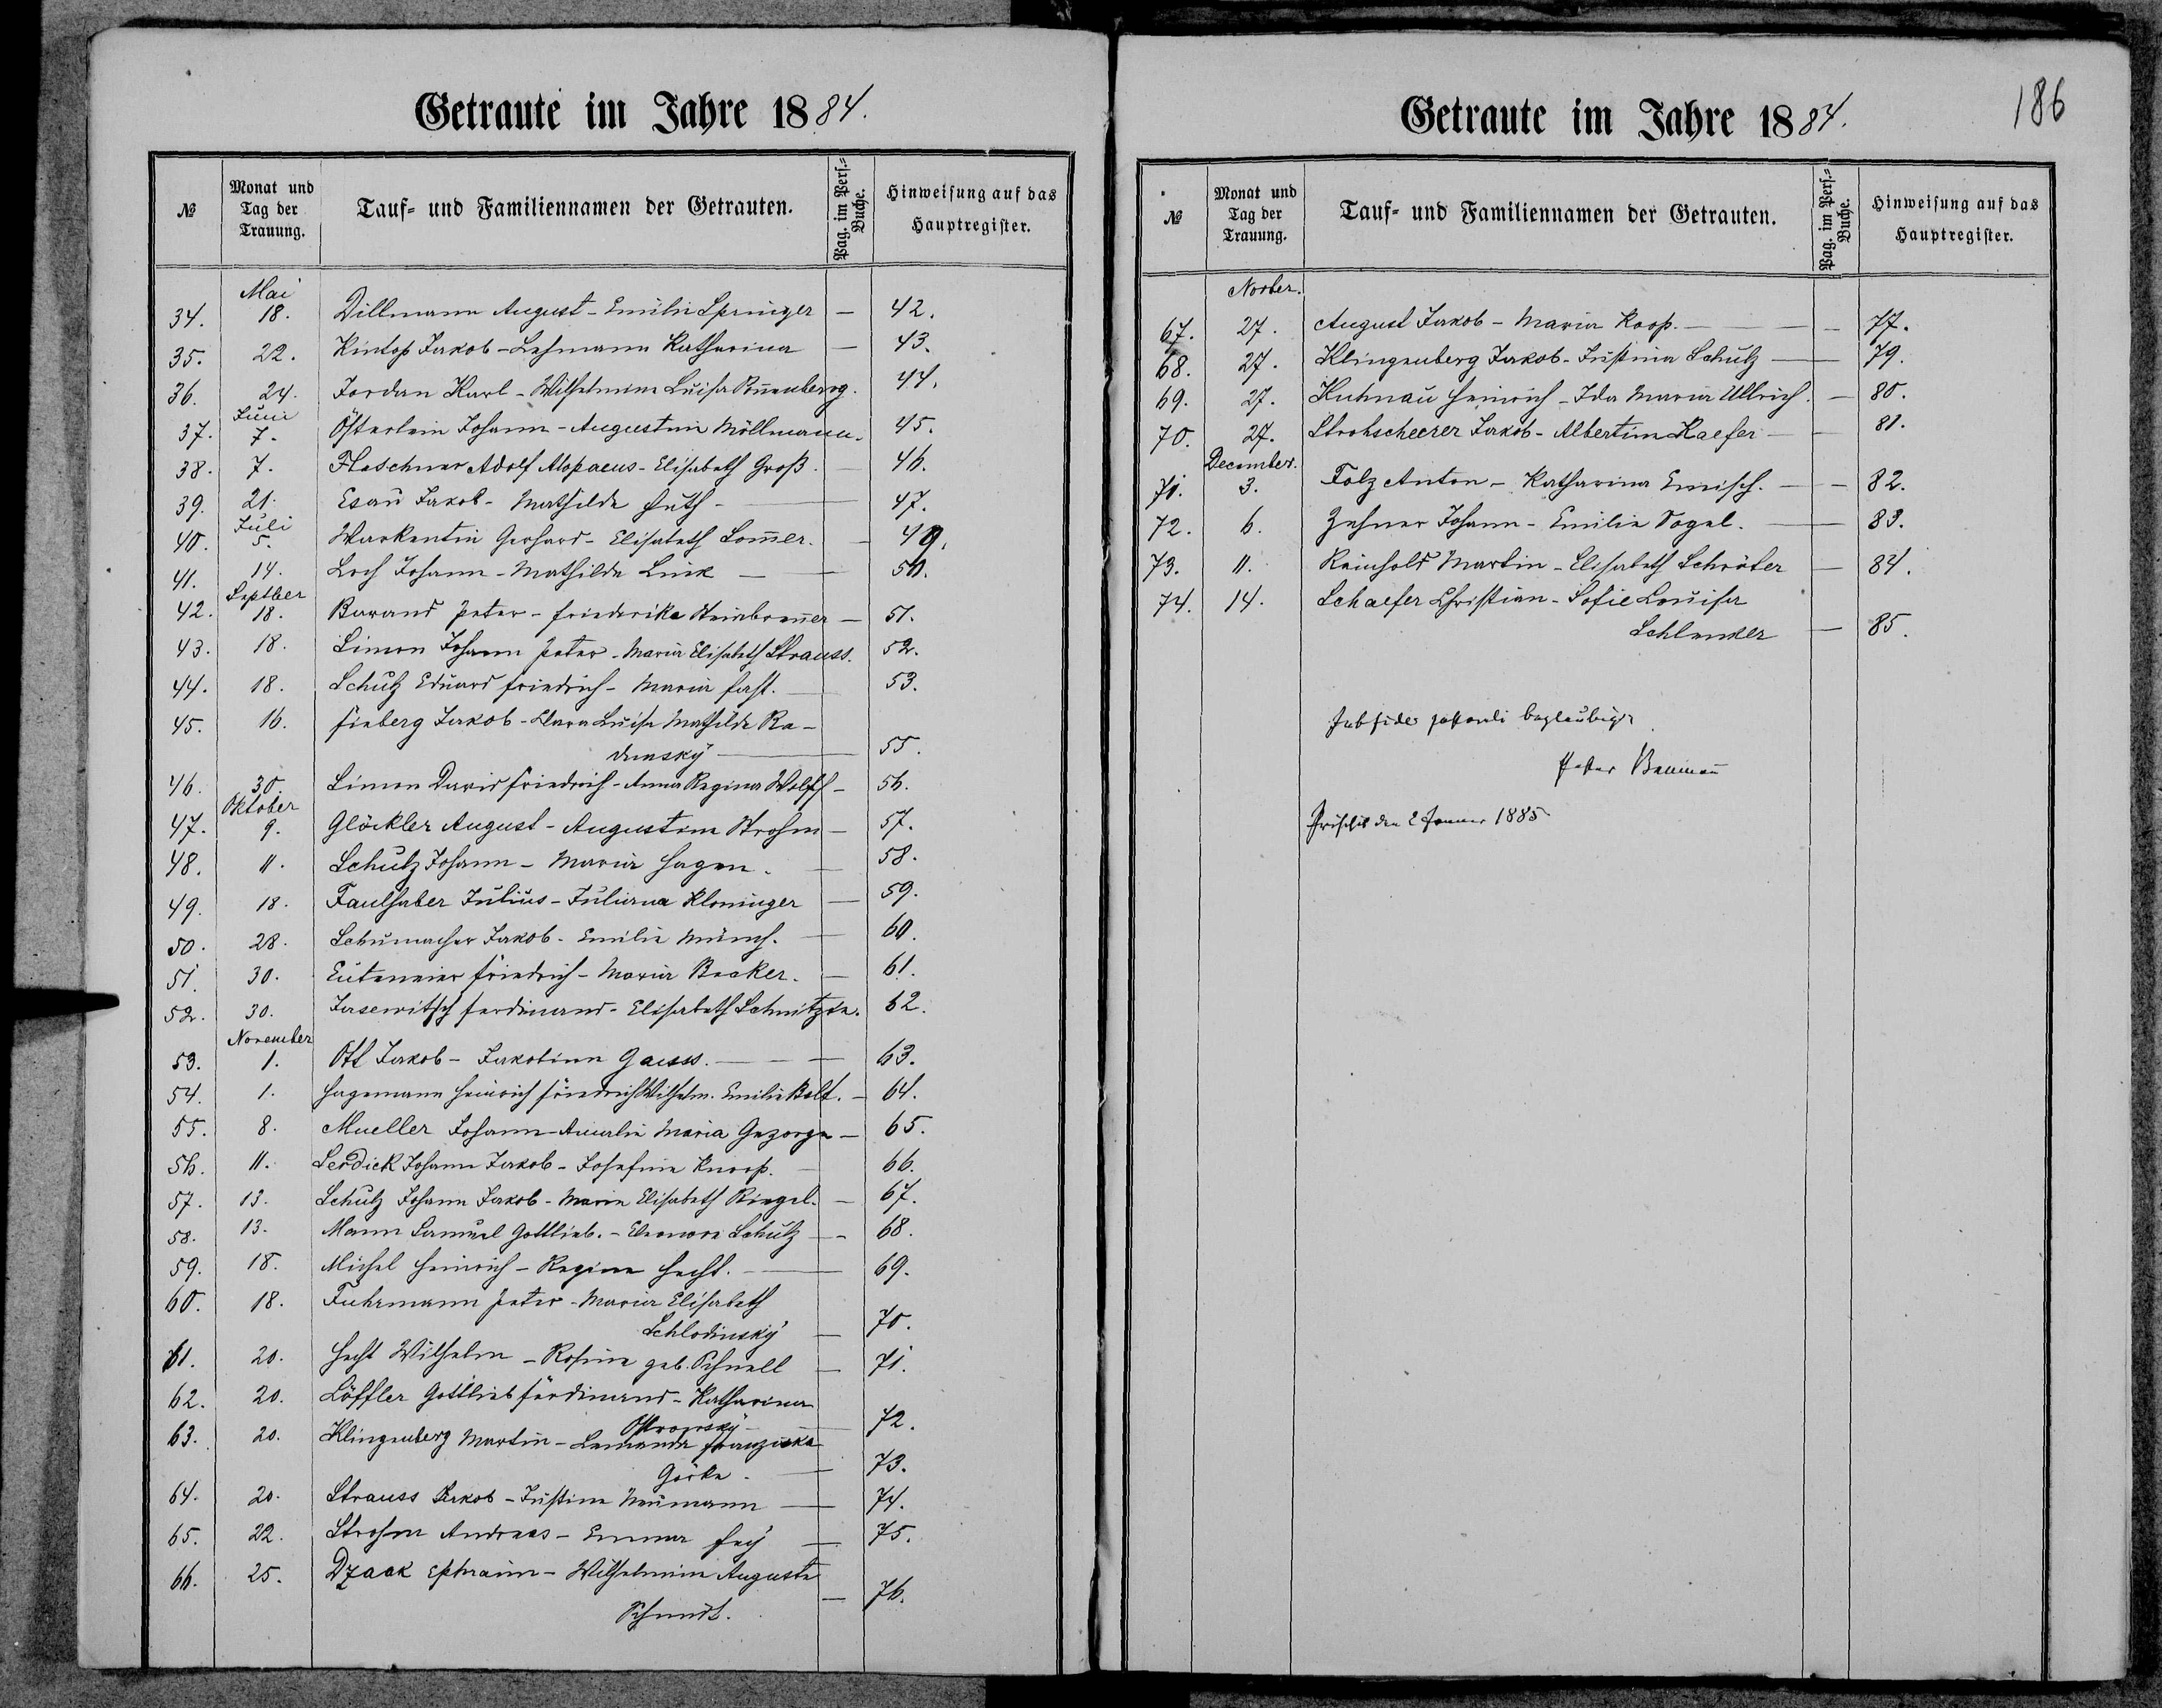 Getraute im Jahre 1884.
№ Monat und Tag der Trauung. Tauf- und Familiennamen der Getrauten. Pag. im Pers.-Buche. Hinweisung auf das Hauptregister.
Mai
34. 18. Dillmann August - Emilie Springer — 42.
35. 22. Kintop Jakob - Lehmann Katharina — 43.
36. 24. Jordan Karl - Wilhelmine Luisa 44.
Juni
37. 7. Österlein Johann - Augustine Möllmann. 45.
38. 7. Flaschner Adolf Alopaeus - Elisabeth Groß. — 46.
39. 21. Esau Jakob - Mathilde Huth — 47.
Juli
40. 5. Warkentin Gerhard - Elisabeth Som̅er. — 49.
41. 14. Loch Johann - Mathilde Link — 50.
Septber
42. 18. Bawand Peter - Friederike Steinbren̅er — 51.
43. 18. Simon Johann Peter - Maria Elisabeth Strauss. 52.
44. 18. Schulz Eduard Friedrich - Maria Fast. — 53.
45. 16. Fieberg Jakob - Klara Luisa Mathilde Ra-
densky — 55.
46. 30. Simon David Friedrich - Anna Regina Wolff — 56.
Oktober
47. 9. Glöckler August - Augustine Strohm — 57.
48. 11. Schulz Johann - Maria Hagen. — 58.
49. 18. Faulhaber Julius - Juliana Kloninger — 59.
50. 28. Schumacher Jakob - Emilie Münch. — 60.
51. 30. Euteneier Friedrich - Maria Becker. — 61.
52. 30. Jasewitsch Ferdinand - Elisabeth Schnitzer. 62.
November
53. 1. Ott Jakob - Jakobina Gauss. — 63.
54. 1. Hagemann Heinrich Friedrich Wilhelm. Emilie Bolt. — 64.
55. 8. Mueller Johann - Amalie Maria Gezorge — 65.
56. 11. Serdick Johann Jakob - Josefine Knoop. — 66.
57. 13. Schulz Johann Jakob - Maria Elisabeth Riegel. — 67.
58. 13. Mann Samuel Gottlieb. - Eleonora Schulz — 68.
59. 18. Michel Heinrich - Regina Hecht. — 69.
60. 18. Fuhrmann Peter - Maria Elisabeth
Schlodinsky — 70.
61. 20. Hecht Wilhelm - Rosine geb. Schnell — 71.
62. 20. Löffler Gottlieb Ferdinand - Katharina
Ostrowsky — 72.
63. 20. Klingenberg Martin - Franziska
Görke. — 73.
64. 20. Strauss Jakob - Justine Neumann — 74.
65. 22. Strohm Andreas - Emma Fey — 75.
66. 25. Dzaak Ephraim - Wilhelmine Auguste
Schmidt. — 76.
Getraute im Jahre 1884.
186
№ Monat und Tag der Trauung. Tauf- und Familiennamen der Getrauten. Pag. im Pers.-Buche. Hinweisung auf das Hauptregister.
Novber.
67. 27. August Jakob - Maria Koop. — 77.
68. 27. Klingenberg Jakob - Justina Schulz — 79.
69. 27. Kuhnau Heinrich - Ida Maria Ullrich. — 80.
70. 27. Strohscheerer Jakob - Albertine Kaefer — 81.
December.
71. 3. Folz Anton - Katharina Emisch. — 82.
72. 6. Zehner Johann - Emilie Vogel. — 83.
73. 11. Reinhold Martin - Elisabeth Schröter — 84.
74. 14. Schaefer Christian - Sofie Louisa
Schlenker — 85.
Sub fide pastorali beglaubigt
Pastor Baumann
Prischib den 2 Januar 1885.